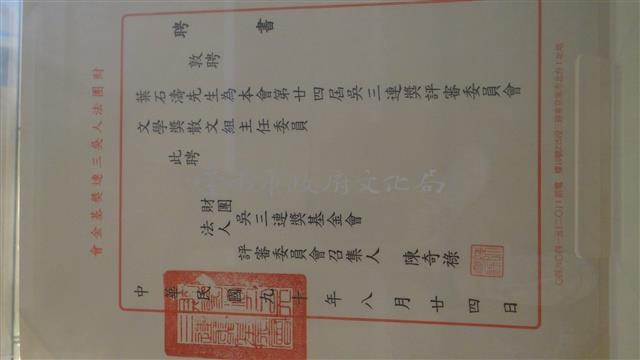 財團法人吳三連獎基金會
聘書
敦聘
葉石濤先生為本會第廿四屆吳三連獎評審委員會
文學獎散文組主任委員
此聘
財團法人吳三連獎基金會
評審委員會召集人 陳奇祿
中華民國九十年八月廿四日
臺南市政府文化局